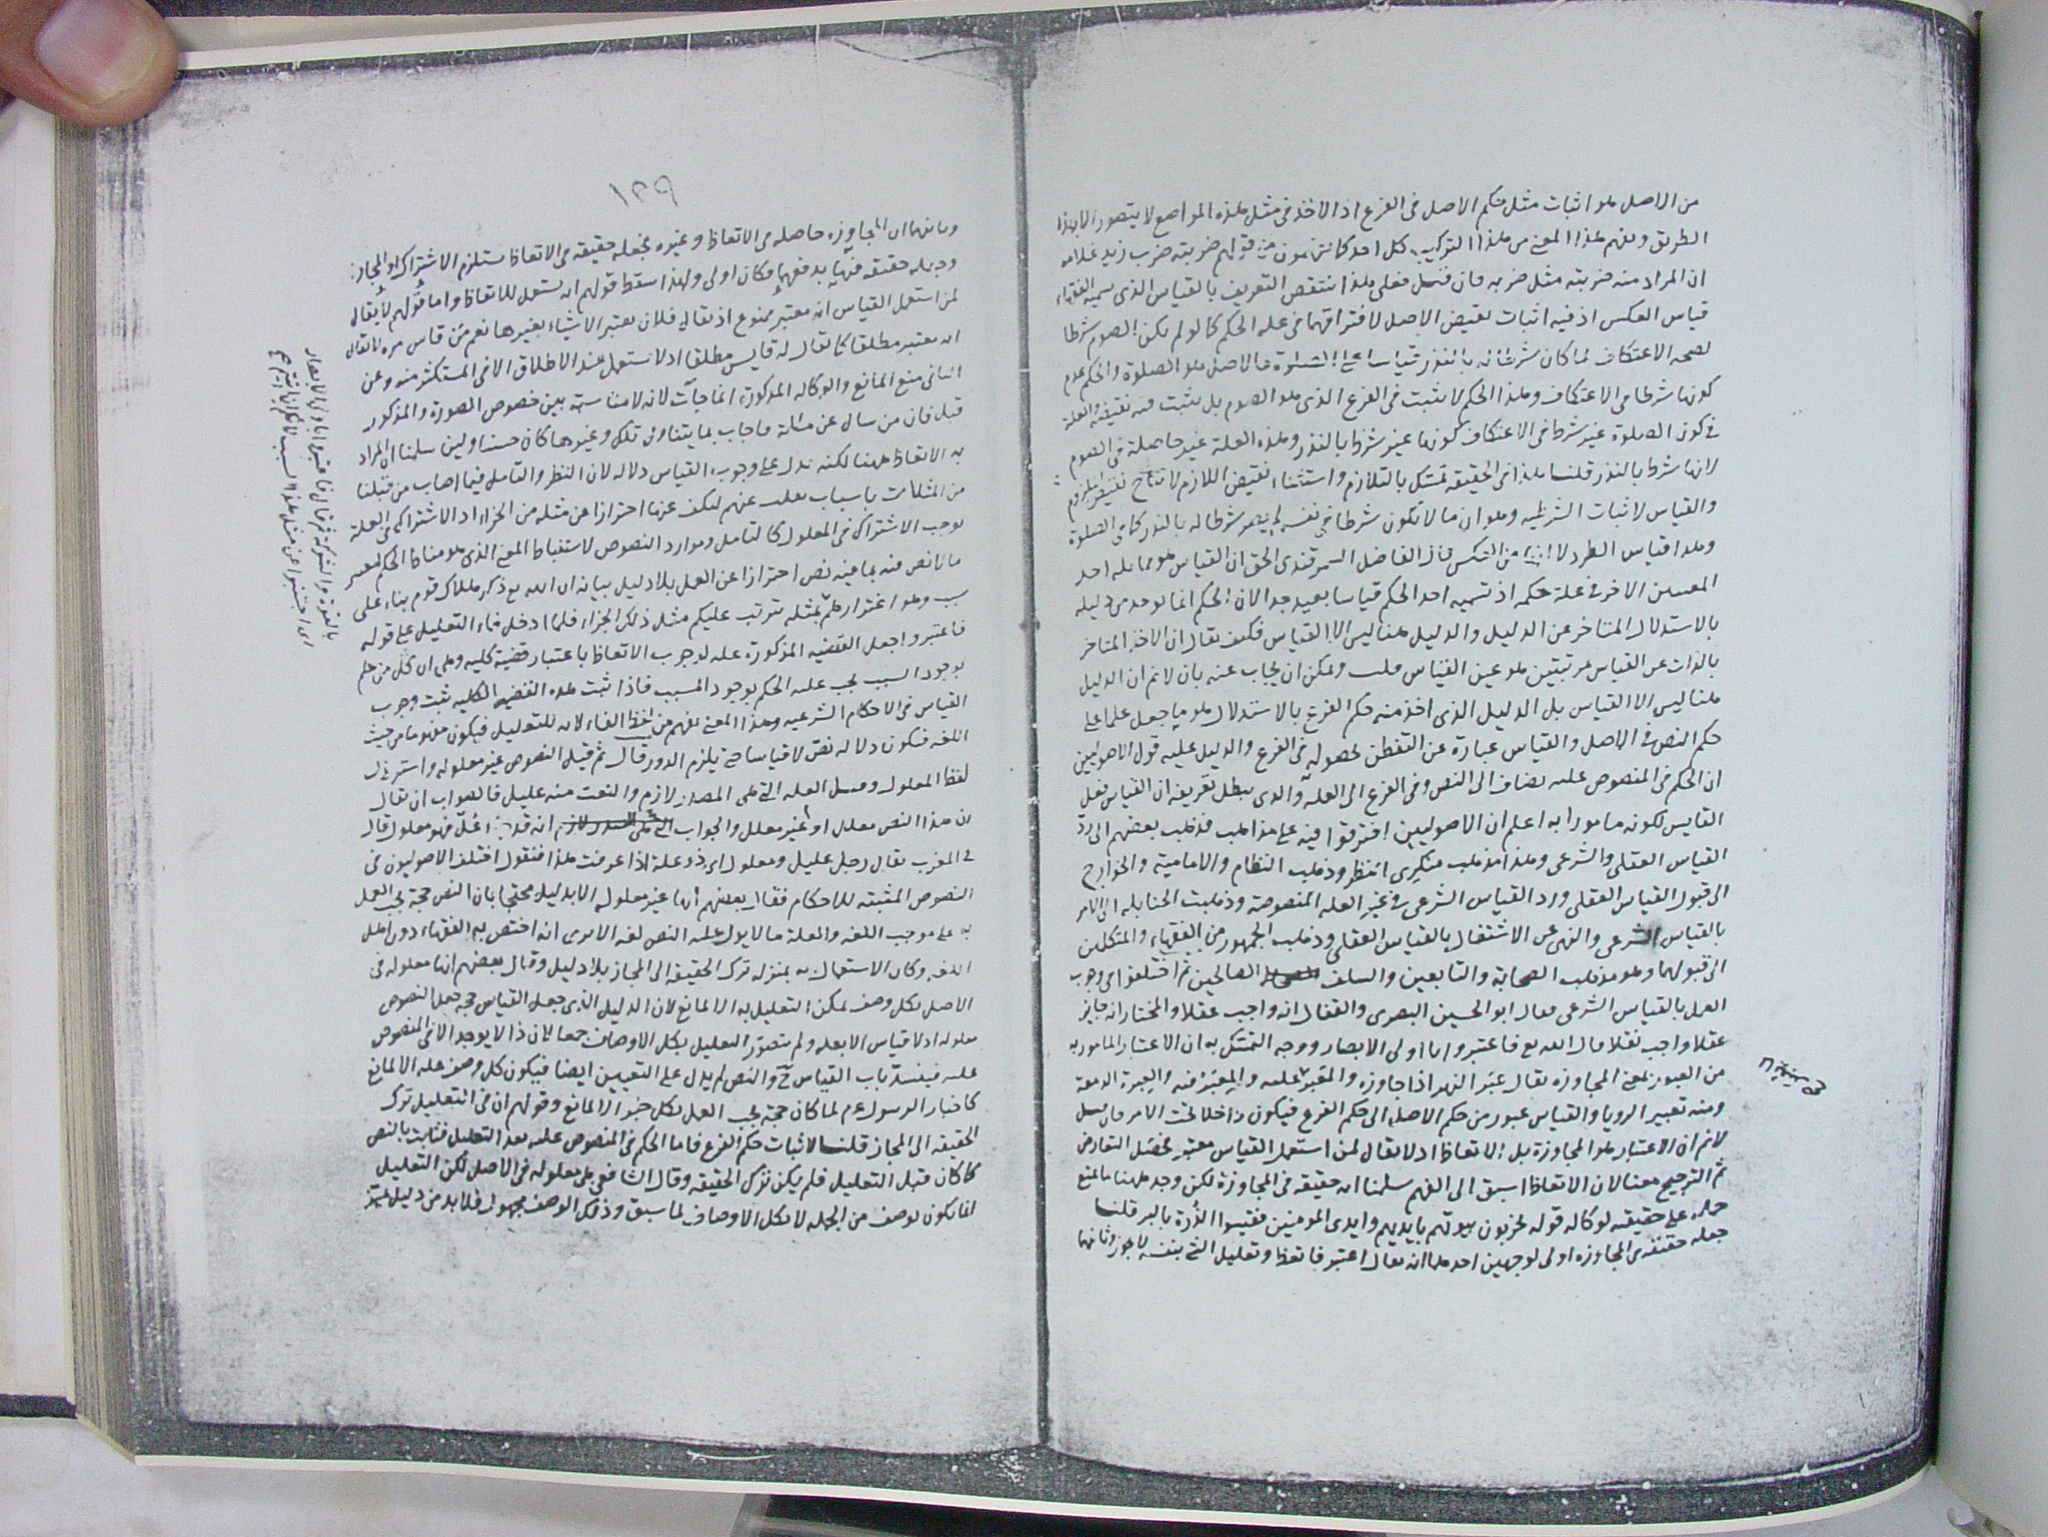 من الاصل هو اثبات مثل حكم الاصل في الفرع اذ الاخذ في مثل هذه المواضع لا يتصور الا بهذا
الطريق وفهم هذا المعنى من هذا التركيب كل احد كما تفهمون من قولهم ضربته ضرب زيد غلامه
ان المراد منه ضربته مثل ضربه فان قيل فعلى هذا ينتقض التعريف بالقياس الذى يسميه الفقهاء
قياس العكس اذ فيه اثبات نقيض الاصل لافتراقهما في علة الحكم كما لو لم يكن الصوم شرطا
لصحه الاعتكاف لما كان شرطا له بالنذر قياسا على الصلوة فالاصل هو الصلوة والحكم عدم
كونها شرطا في الاعتكاف وهذا الحكم لا يثبت في الفرع الذى هو الصوم بل يثبت فيه نقيضه والعلة
في كون الصلوة غير شرط في الاعتكاف كونها غير شرط بالنذر وهذه العلة غير حاصلة في الصوم
لانها شرط بالنذر قلنا هذا في الحقيقه تمسك بالتلازم واستثناء نقيض اللازم لانتاج نقيض الملزوم
والقياس لاثبات الشرطيه وهو ان ما لا يكون شرطا في نفسه لم يصر شرطا له بالنذر كما في الصلوة
وهذا قياس الطرد لا من العكس قال الفاضل السمرقندى الحق ان القياس هو مماثله احد
المعنيين الاخر في علة حكمه اذ تسميه احد الحكم قياسا بعيد جدا لان الحكم انما يوخذ من دليله
بالاستدلال المتاخر عن الدليل والدليل هنا ليس الا القياس فكيف يقال ان الاخذ المتاخر
بالذات عن القياس مرتبتين هو عين القياس قلت ويمكن ان يجاب عنه بان لا نم ان الدليل
هنا ليس الا القياس بل الدليل الذى اخذ منه حكم الفرع بالاستدلال هو ما جعل علما على
حكم النص في الاصل والقياس عبارة عن التفطن لحصوله في الفرع والدليل عليه قول الاصوليين
ان الحكم في المنصوص عليه يضاف الى النص وفي الفرع الى العله والذى يبطل تعريفه ان القياس فعل
القايس لكونه مامورا به اعلم ان الاصوليين افترقوا فيه على مذاهب فذهب بعضهم الى رد
القياس العقلى والشرعى وهذا مذهب منكرى النظر وذهب النظام والامامية والخوارج
الى قبول القياس العقلى ورد القياس الشرعى في غير العله المنصوصة وذهبت الحنابله الى الامر
بالقياس الشرعى والنهى عن الاشتغال بالقياس العقلى وذهب الجمهور من الفقهاء والمتكلمين
الى قبولهما وهو مذهب الصحابة والتابعين والسلف الصالحين ثم اختلفوا في وجوب
العمل بالقياس الشرعى فقال ابو الحسين البصرى والقفال انه واجب عقلا والمختار انه جايز
عقلا واجب نقلا قال الله تع فاعتبروا يا اولى الابصار ووجه التمسك به ان الاعتبار المامور به
من العبور بمعنى المجاوزه يقال عبر النهر اذا جاوزه والمعبر عليه والمعبر فيه والعبرة الدمعة
ومنه تعبير الرويا والقياس عبور من حكم الاصل الى حكم الفرع فيكون داخلا تحت الامر فان قيل
لانم ان الاعتبار هو المجاوزة بل الاتعاظ اذ لا يقال لمن استعمل القياس معتبر فحصل التعارض
ثم الترجيح معنا لان الاتعاظ اسبق الى الفهم سلمنا انه حقيقه في المجاوزة لكن وجد ههنا ما يمنع
حمله على حقيقه لركاكه قوله يخربون بيوتهم بايديهم وايدى المومنين فقيسوا الذرة بالبر قلنا
جعله حقيقه في المجاوزه اولى لوجهين احدهما انه يقال اعتبر فاتعظ وتعليل الشئ بنفسه لا يجوز وثانيهما
١٢٩
وثانيهما ان المجاوزه حاصله في الاتعاظ وغيره فجعله حقيقه في الاتعاظ يستلزم الاشتراك او المجاز
وجعله حقيقه فيها يدفعهما فكان اولى ولهذا سقط قولهم انه يستعمل للاتعاظ واما قولهم لا يقال
لمن استعمل القياس انه معتبر ممنوع اذ يقال فلان يعتبر الاشياء بغيرها نعم من قاس مره لا يقال
انه معتبر مطلقا كما يقال له قايس مطلقا اذ لا يستعمل عند الاطلاق الا في المستكثر منه وعن
الثانى منع المانع والركاكه المذكورة انما جآت لانه لا مناسبة بين خصوص الصورة والمذكور
قبل فان من سال عن مسئلة فاجاب بما يتناول تلك وغيرها كان حسنا ولين سلمنا ان المراد
به الاتعاظ ههنا لكنه يدل على وجوب القياس دلاله لان النظر والتامل فيما اصاب من قبلنا
من المثلات باسباب نقلت عنهم لنكف عنها احترازا عن مثله من الجزاء اذ الاشتراك في العلة
يوجب الاشتراك في المعلول كالتامل في موارد النصوص لاستنباط المعنى الذى هو مناط الحكم ليعتبر
ما لا نص فيه بما فيه نص احترازا عن العمل بلا دليل بيانه ان الله تع ذكر هلاك قوم بناء على
سبب وهو اغترارهم بمثله يترتب عليكم مثل ذلك الجزاء فلما ادخل فاء التعليل على قوله
فاعتبروا جعل القضيه المذكورة علة لوجوب الاتعاظ باعتبار قضية كليه وهى ان كل من علم
بوجود السبب يجب عليه الحكم بوجود المسبب فاذا ثبت هذه القضيه الكليه ثبت وجوب
القياس في الاحكام الشرعيه وهذا المعنى يفهم من لفظ الفاء لانه للتعليل فيكون مفهوما من حيث
اللغه فيكون دلالة نص لا قياسا حتى يلزم الدور قال ثم قيل النصوص غير معلوله واسترذل
لفظ المعلول العله التي هى المصدر لازم والنعت منه عليل فالصواب ان يقال
ان هذا النص معلل او غير معلل والجواب انه قد اعل فهو معلول قال
في المغرب يقال رجل عليل ومعلول اى ذو علة اذا عرفت هذا فنقول اختلف الاصوليون في
النصوص المثبته للاحكام فقال بعضهم انها غير معلوله الا بدليل محتجا بان النص حجة يجب العمل
به على موجب اللغه والعلة ما لا يدل عليه النص لغه الا ترى انه اختص به الفقهاء دون اهل
اللغه وكان الاستعمال به بمنزله ترك الحقيقه الى المجاز بلا دليل وقال بعضهم انها معلوله في
الاصل بكل وصف يمكن التعليل به الا لمانع لان الدليل الذى جعل القياس حجة جعل النصوص
معلوله اذ لا قياس الا بعله ولم يتصور التعليل بكل الاوصاف جمعا لان ذا لا يوجد الا في المنصوص
عليه فينسد باب القياس والنص لم يدل على التعيين ايضا فيكون كل وصف عله الا لمانع
كاخبار الرسول ع م لما كان حجة يجب العمل بكل خبر الا لمانع وقولهم ان في التعليل ترك
الحقيقه الى المجاز قلنا لاثبات حكم الفرع فاما الحكم في المنصوص عليه بعد التعليل فثابت بالنص
كما كان قبل التعليل فلم يكن ترك الحقيقه وقال الشافعى هى معلوله في الاصل لكن التعليل
انما يكون بوصف من الجمله لا بكل الاوصاف لما سبق وذلك الوصف مجهول فلا بد من دليل
بالقوة والشوكة ثم قال فاعتبروا يا اولى الابصار
اى اجتنبوا عن مثل هذا السبب لانكم ان اتيتم